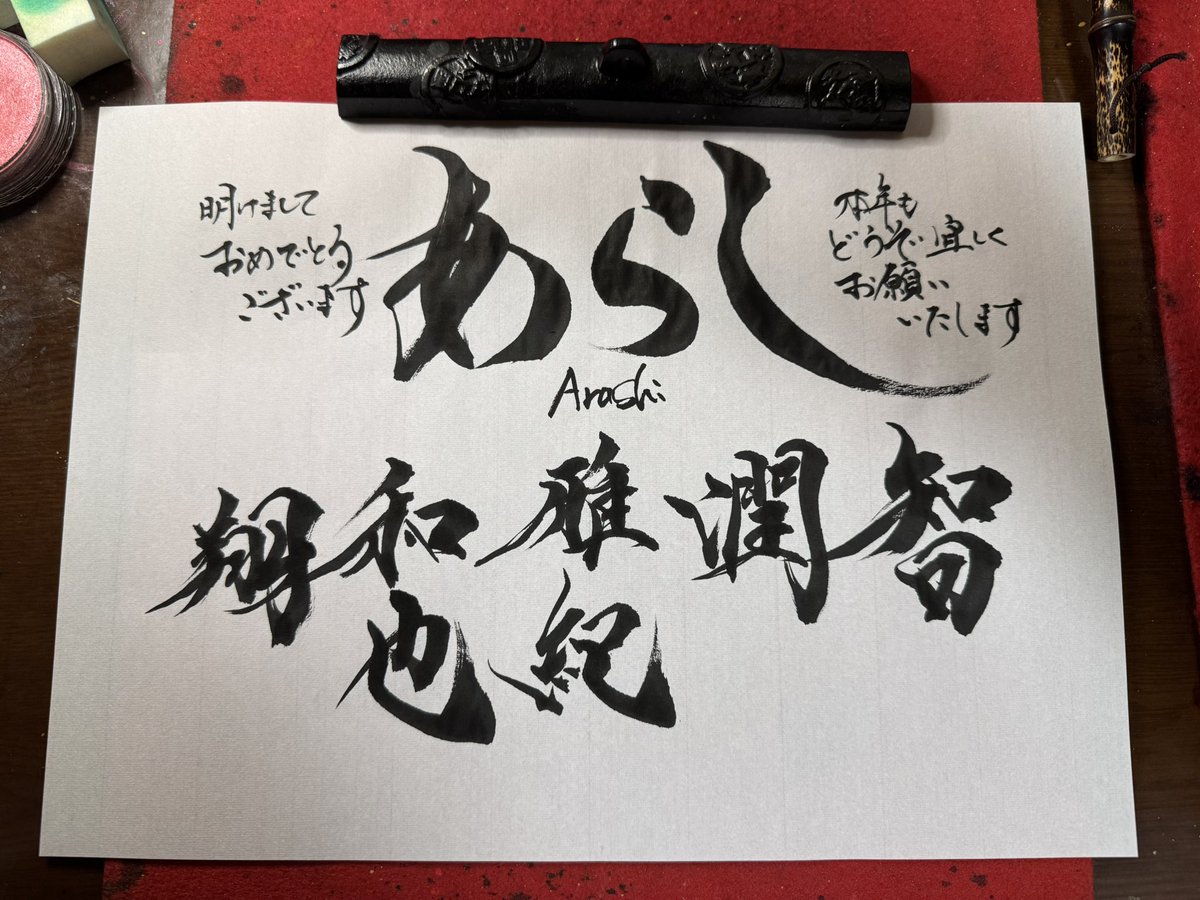 明けまして
おめでとう
ございます
あらし
本年も
どうぞ宜しく
お願い
いたします
Arashi
智
潤
雅紀
和也
翔